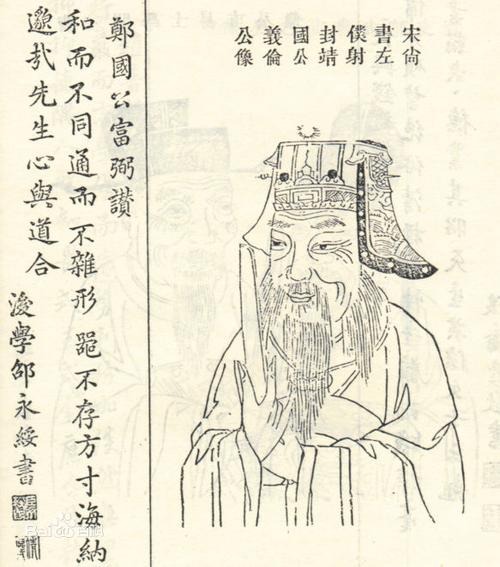 宋尚
書左
僕射
封靖
國公
義倫
公像
鄭國公富弼讚
和而不同通而不雜形器不存方寸海納
邈哉先生心與道合
後學邵永綏書
Bai百科